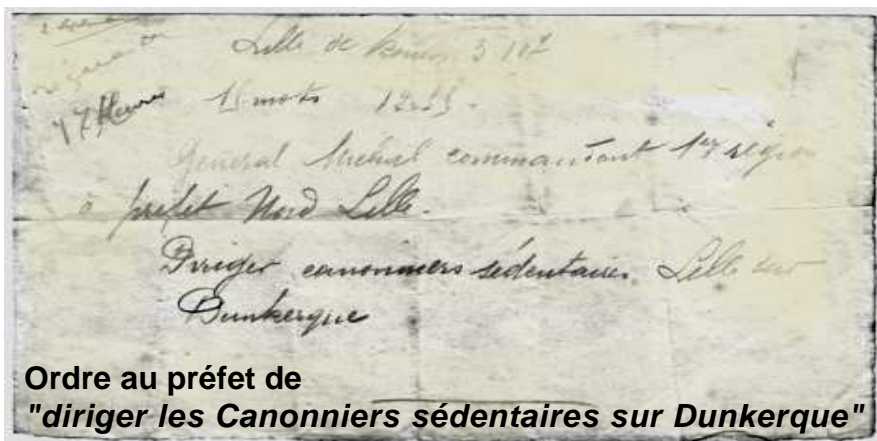 Lille de
17 Heures 15 mots 12.55.
Général Michel commandant 1re région
à préfet Nord Lille.
Diriger canonniers sédentaires Lille sur
Dunkerque
Ordre au préfet de
"diriger les Canonniers sédentaires sur Dunkerque"